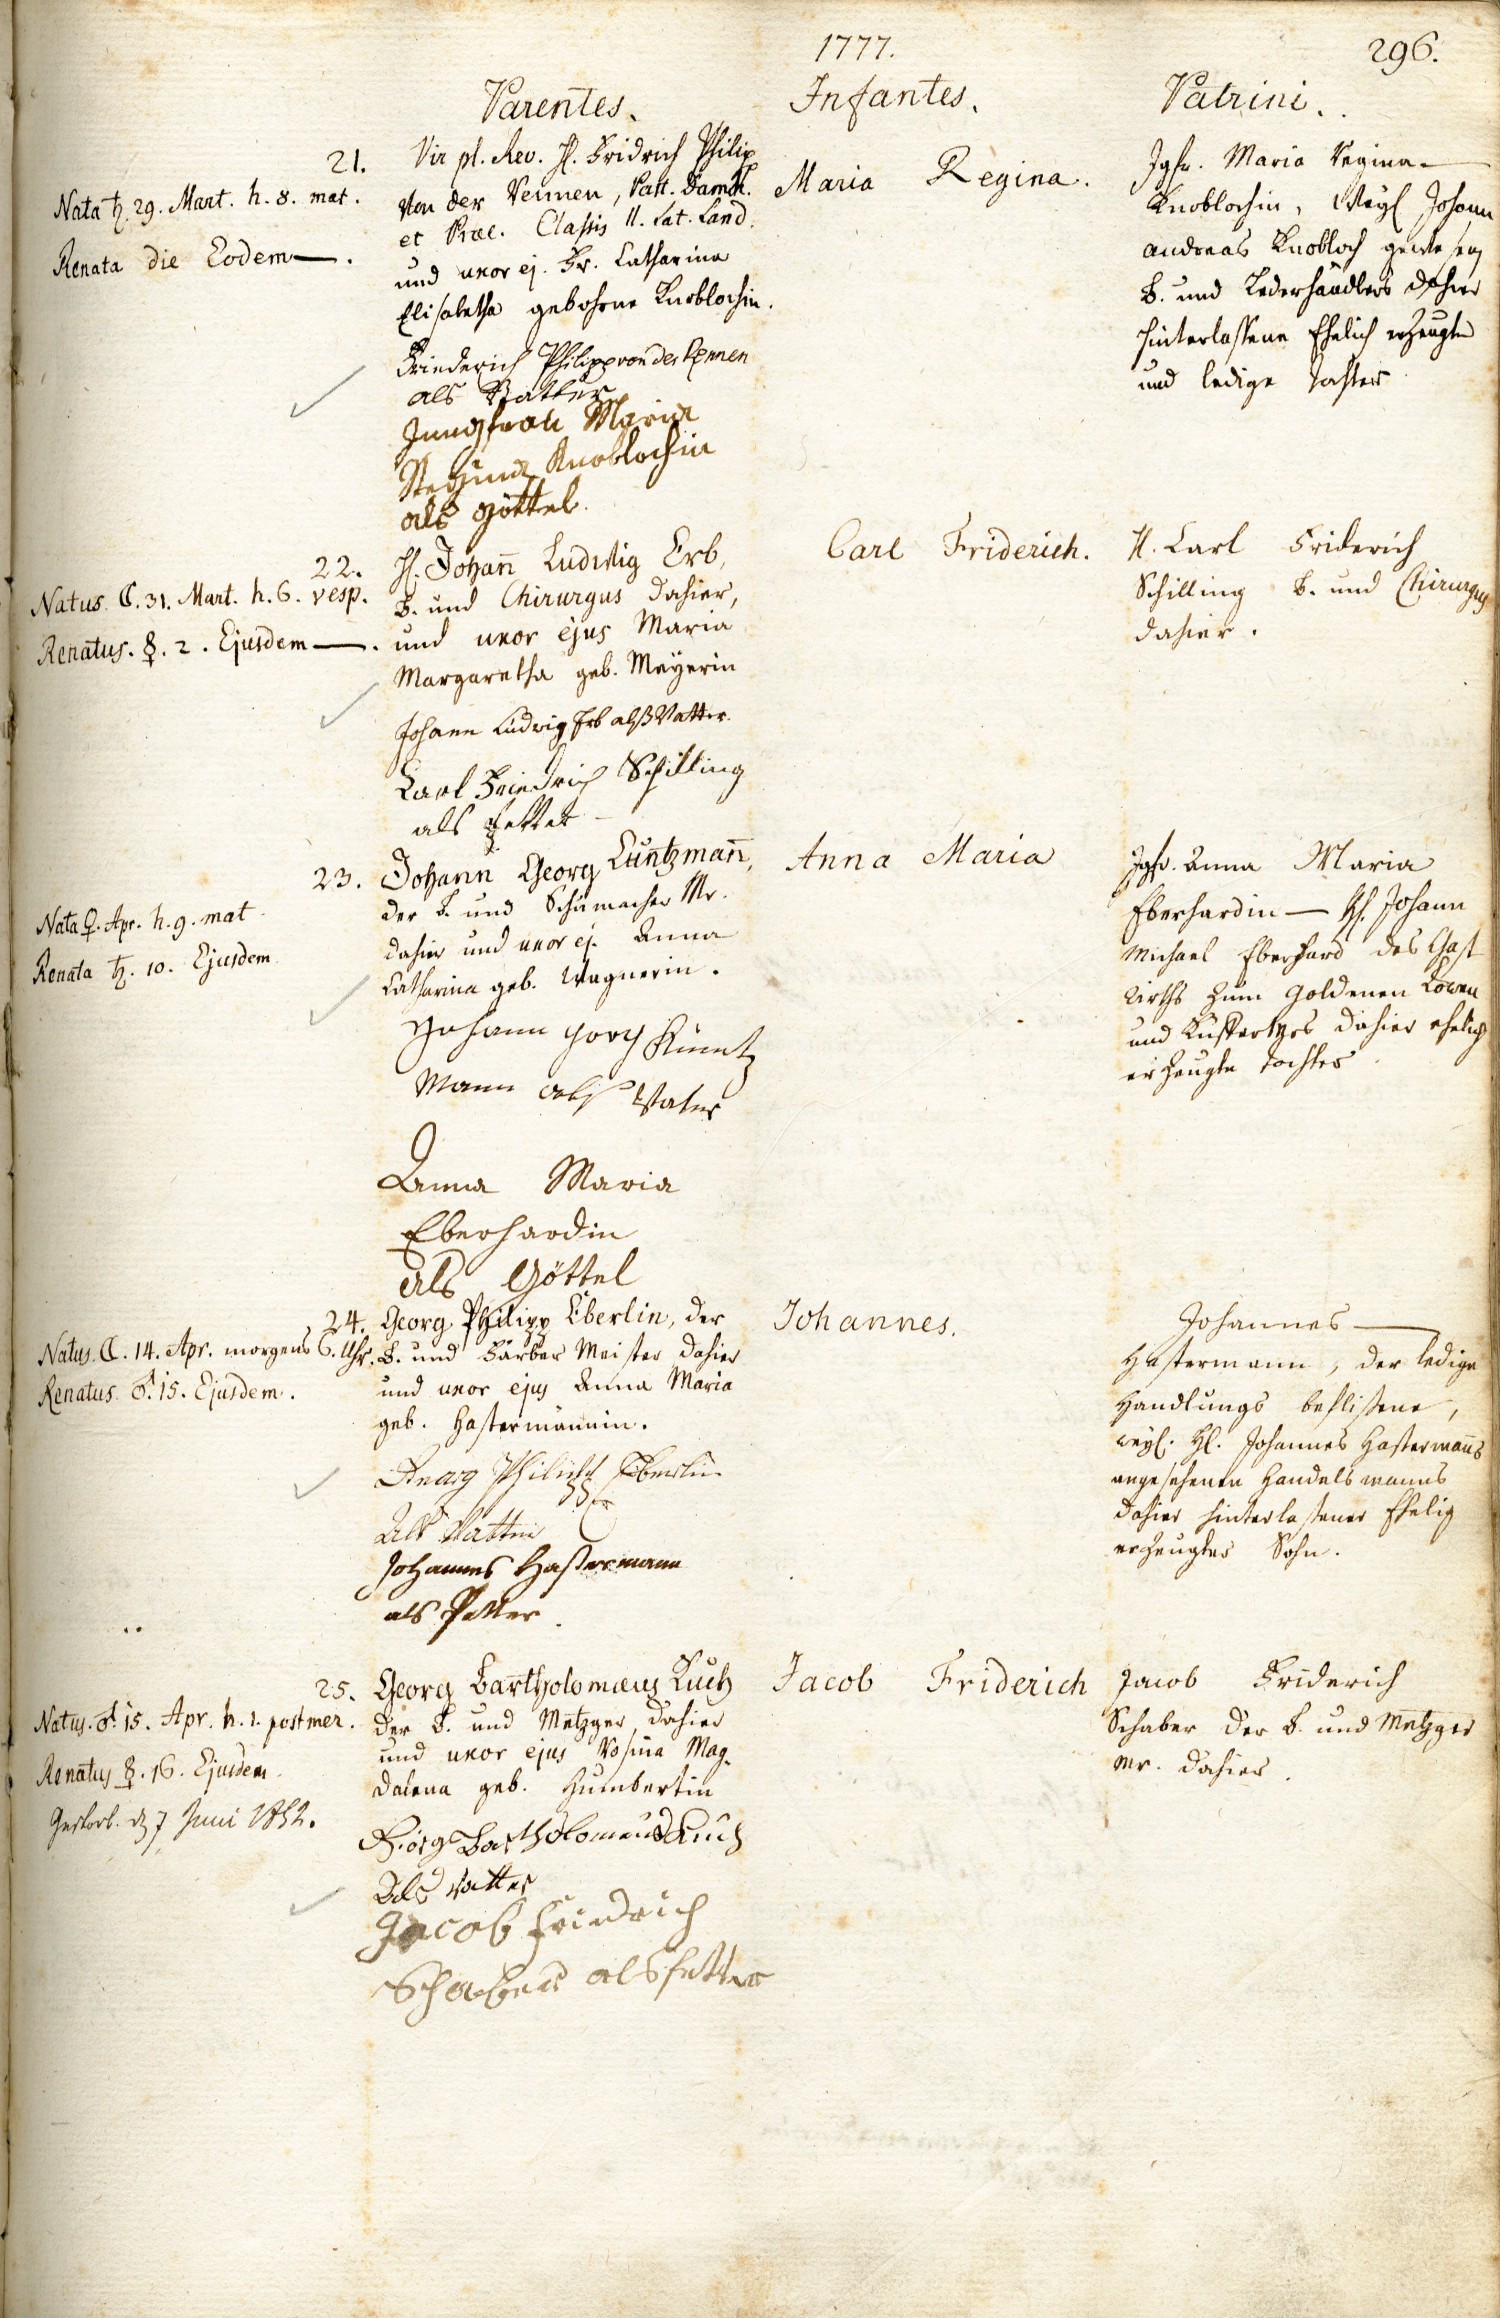 1777.
296.
Parentes.
Infantes.
Patrini.
21.
Nata ♄. 29. Mart. h. 8. mat.
Renata die Eodem —.
Vir pl. Rev. H. Fridrich Philip
von der Rennen, Past.
et Præ. Classis II. Lat. Land.
und uxor ej. Fr. Catharina
Elisabetha gebohrne Knoblochin.
Friederich Philipp von der Rennen
als Vatter
Jungfrau Maria
Regina Knoblochin
als Göttel.
Maria Regina.
Jgfr. Maria Regina —
Knoblochin, Weyl Johann
Andreas Knobloch gewesenen
B. und Lederhändlers dahier
hinterlassene Ehelich erzeugte
und ledige Tochter
22.
Natus ☾. 31. Mart. h. 6. vesp.
Renatus. ☿. 2. Ejusdem —.
H. Johann̄ Ludwig Erb,
B. und Chirurgus dahier,
und uxor ejus Maria
Margaretha geb. Meyerin
Johann Ludwig Erb alß Vatter.
Carl Friedrich Schilling
als Pfetter
Carl Friderich.
H. Carl Friderich
Schilling B. und Chirurgus
dahier.
23.
Nata ♀. Apr. h. 9. mat
Renata ♄. 10. Ejusdem
Johann Georg Cuntzman̄,
der B. und Schumacher Mr.
dahier und uxor ej. Anna
Catharina geb. Wagnerin.
Johann Georg Kuntz
Mann als Vater
Anna Maria
Eberhardin
als Göttel
Anna Maria
Jgfr. Anna Maria
Eberhardin — H. Johann
Michael Eberhard des Gast
wirths zum goldenen Löwen
und dahier ehelich
erzeugte Tochter
24.
Natus ☾. 14. Apr. morgens 6. Uhr.
Renatus ♂. 15. Ejusdem.
Georg Philipp Eberlin, der
B. und Färber Meister dahier
und uxor ejus Anna Maria
geb. Hastermännin.
Georg Philipp Eberlin
Als Vatter
Johannes Hastermann
als Petter.
Johannes.
Johannes —
Hastermann, der ledige
Handlungs beflißene,
weyl. H. Johannes Hastermañs
angesehenen Handelsmanns
dahier hinterlaßener Ehelig
erzeugter Sohn.
25.
Natus. ♂. 15. Apr. h. 1. post mer.
Renatus ☿. 16. Ejusdem.
Gestorb. d. 7 Juni 1852.
Georg Bartholomæus Kuch
der B. und Metzger dahier
und uxor ejus Rosina Mag-
dalena geb. Humbertin
Georg Bartholomeus Kuch
Als Vatter
Jacob Friedrich
Schaber als Petter
Jacob Friderich
Jacob Friderich
Schaber der B. und Metzger
Mr. dahier.